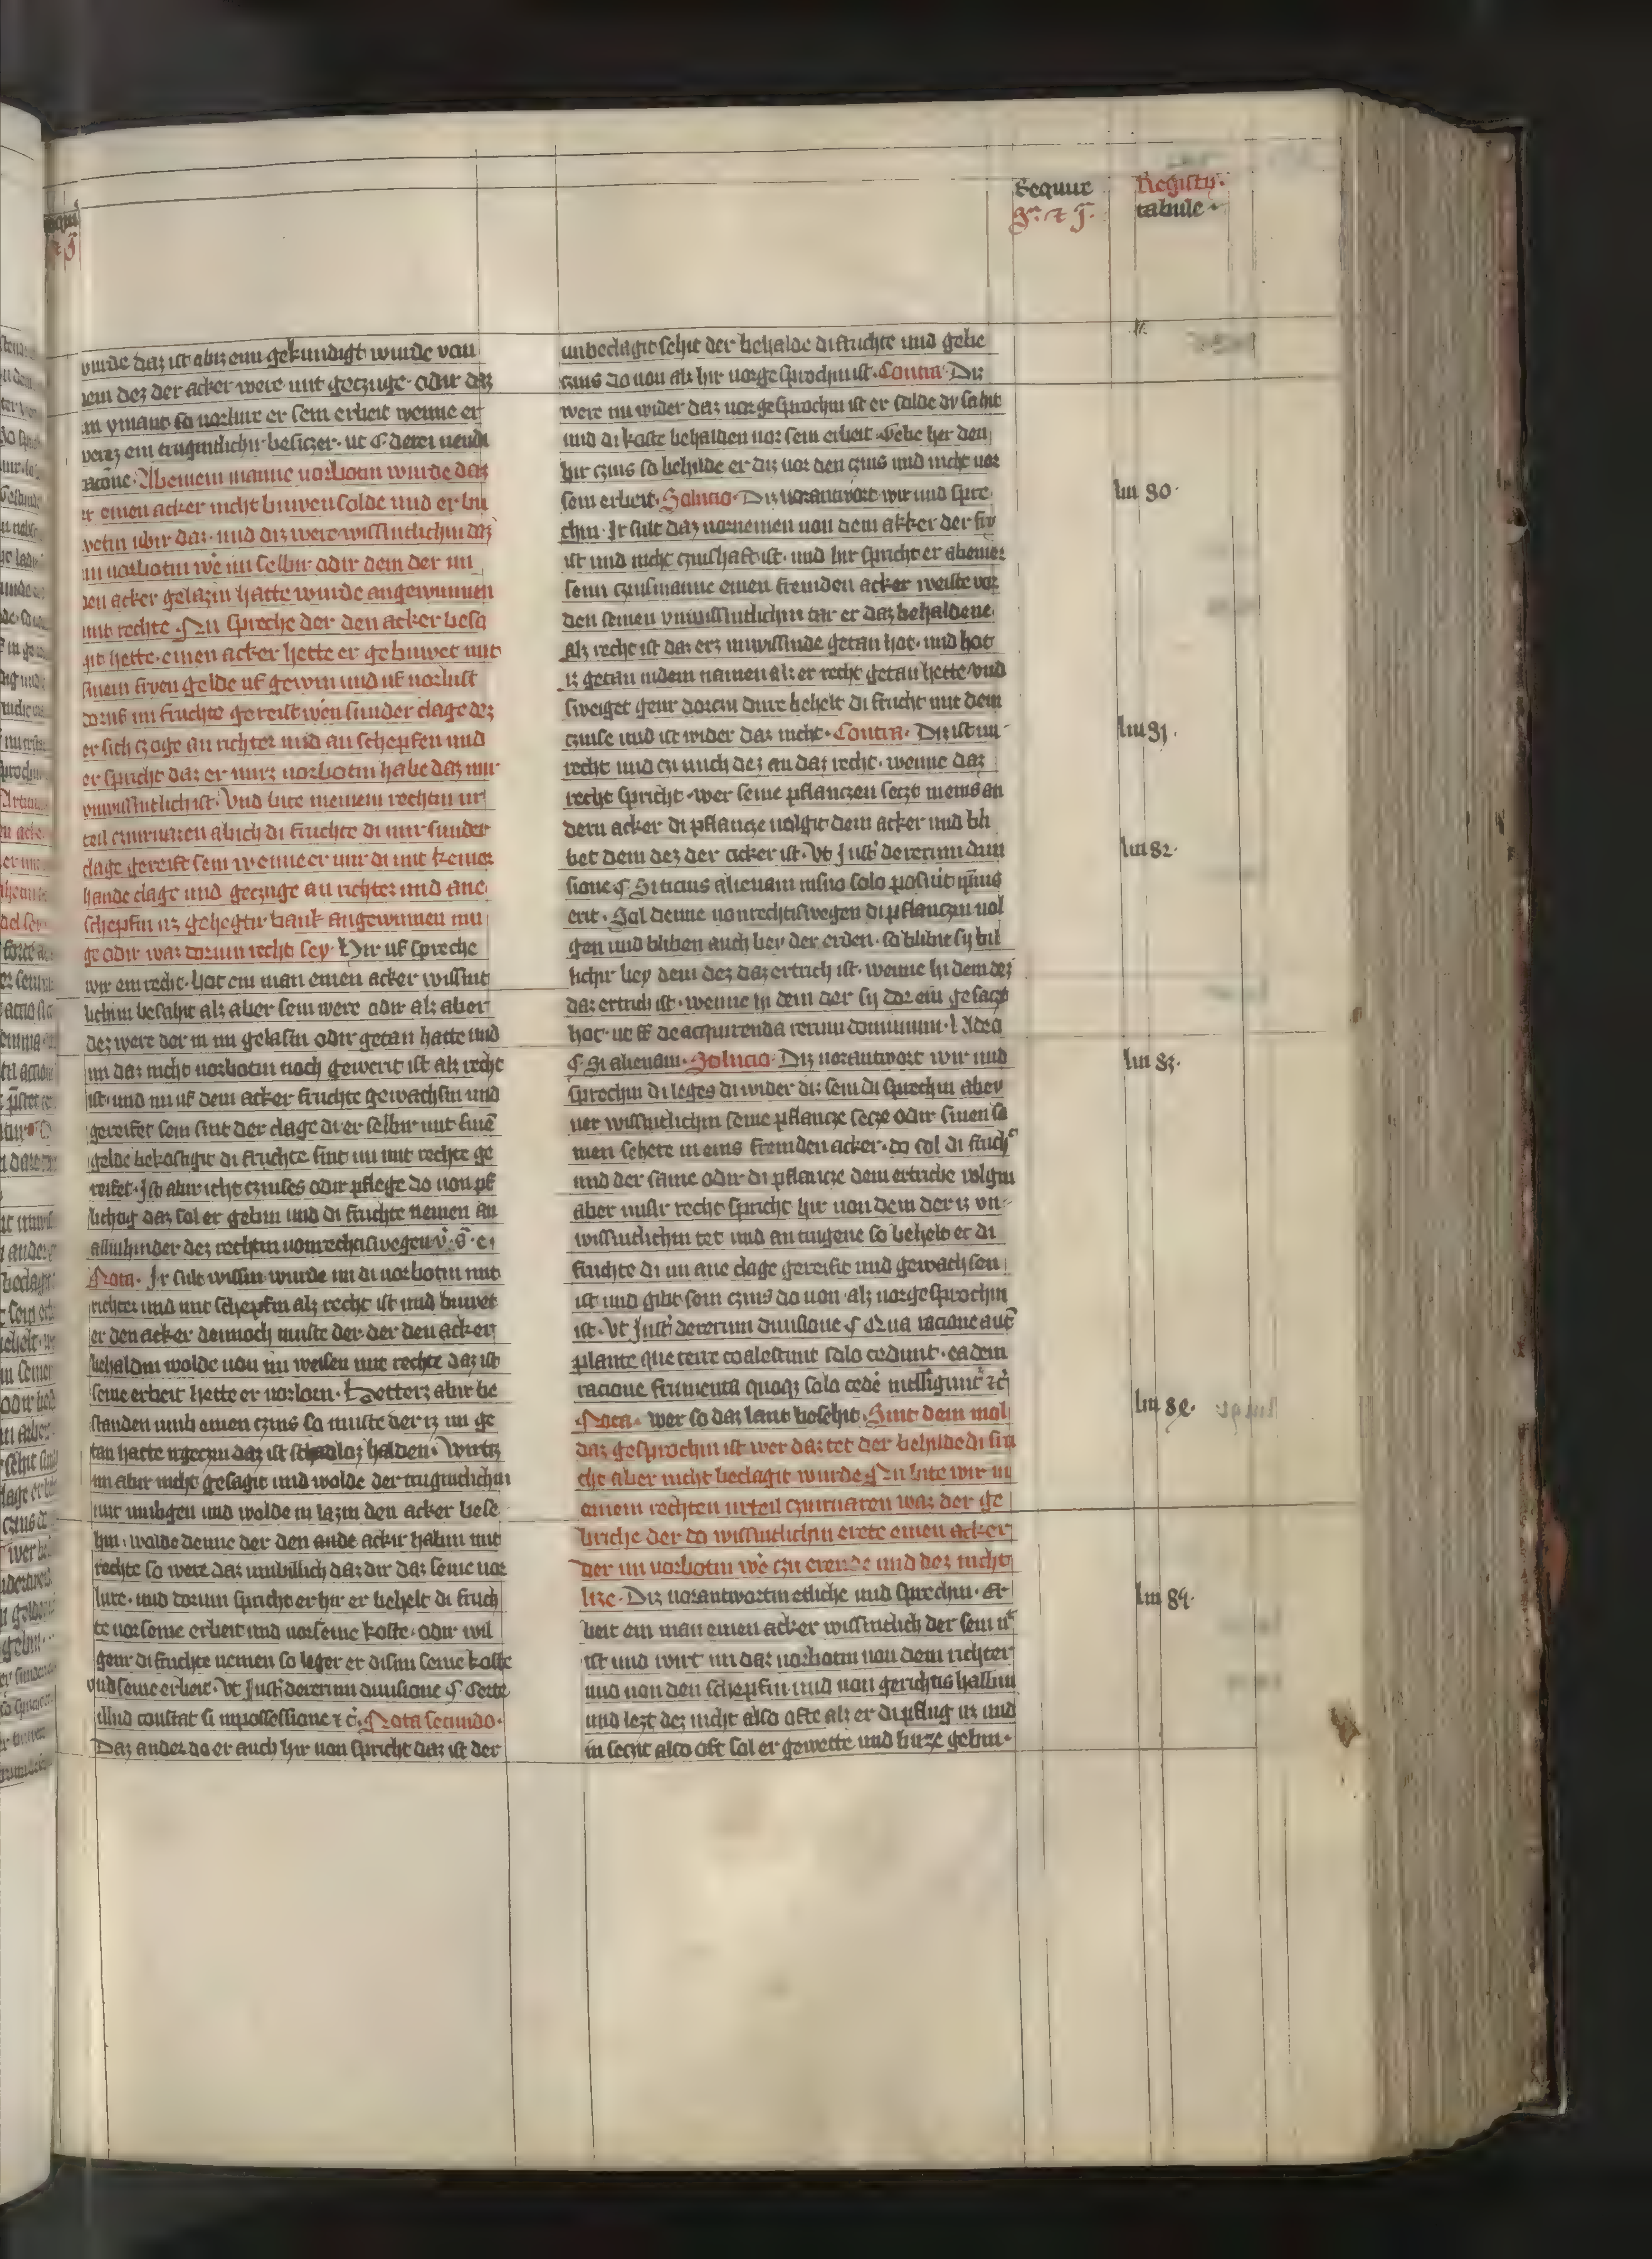 Sequitur
gͬ. et j̄.
Registru.
tabule
wurde daz ist abirz em gekundigt wurde von
dem dez der acker were mit geczuge odir daz
so vorlure er sein erbeit wenne er
werez ein trugintlichir besiczer. ut § de rei vendi
cacōne. Ab einem manne vorbotin wurde daz
er einen acker nicht buwen solde und er bu
wetin ubir daz. und diz were wissintlichin daz
im vorbotin we im selbir odir dem der im
den acker gelazin hatte wurde angewunnen
mit rechte. Nu spreche der den acker besa
git hette. einen acker hette er gebuwet mit
sinem frien gelde uf gewin und uf vorlust
doruf im fruchte gereift wen sunder clage dez
er sich czoge an richter und an schepfen und
er spricht daz er mirz vorbotin habe daz mir
unwissintlich ist. Und bite meinem rechtin ur
teil czuirvaren ab ich di fruchte di mir sunder
clage gereift sein wenne er mir di mit keiner
hande clage und geczuge an richter und ane
schepfin uz gehegtir bank angewinnen mu
ge odir waz dorum recht sey. Hir uf spreche
wir ein recht. hot ein man einen acker wissint
lichin besahit alz aber sein were odir alz aber
dez were der in im gelasin odir getan hatte und
im daz nicht vorbotin noch gewerit ist alz recht
ist. und im uf dem acker fruchte gewachsin und
gereifet sein sint der clage di er selbir mit sinē
gelde bekostigit di fruchte sint im mit rechte ge
reifet. Ist abir icht czinses odir pflege do von pf
lichtig daz sol er gebin und di fruchte nemen an
allirhinder dez rechtin von rechtiswegen v̇. s̄. e.
Nota. Ir sult wissin wurde im di vorbotin mit
richter und mit schepfin alz recht ist und buwet
er den acker dennoch muste der der den acker
behaldin wolde von im weisen mit rechte daz ist
seine erbeit hette er vorlorn. Hetterz abir be
standen umb einen czins so muste der iz im ge
tan hatte in geczu daz ist schadloz halden. Wirtz
im abir nicht gesagit und wolde der trugintlichin
mit umbgen und wolde in lazin den acker bese
hin. wolde denne der den ande ackir habin mit
rechte so were daz unbillich daz dir daz seine vor
lure. und dorum spricht er hir er behelt di fruch
te vor seine erbeit und vor seine koste. odir wil
genr di fruchte nemen so leger er disim seine koste
und seine erbeit. Ut Insti de rerum divisione § Certe
illud constat si in possessione ⁊ c̄. Nota secundo.
Daz ander do er auch hir von spricht daz ist der
unbeclagit sehit der behalde di fruchte und gebe
czins do von alz hir vorgesprochin ist. Contra. Diz
were nu wider daz vorgesprochin ist er solde dy sahit
und di koste behalden vor sein erbeit. Gebe her den
hir czins so behilde er diz vor den czins und nicht vor
sein erbeit. Solucio. Diz vorantwort wir und spre
chin. Ir sult daz vornemen von dem akker der fry
ist und nicht czinshaft ist. und hir spricht er ab einer
seim czinsmanne einen fremden acker weiste vor
den seinen unwissintlichin tar er daz behaldene.
Alz recht ist daz erz unwissinde getan hot. und hot
iz getan in dem namen alz er recht getan hette. und
sweiget genr dorczu dirre behelt di frucht mit dem
czinse und ist wider daz nicht. Contra. Diz ist un
recht und czu uch dez an daz recht. wenne daz
recht spricht. wer seine pflanczen seczt in eins an
dern acker di pflancze volgit dem acker und bli
bet dem dez der acker ist. Ut Insti de rerum divi
sione § Si ticius alienam in suo solo posuit ip̄ius
erit. Sal denne von rechtiswegen di pflanczin vol
gen und bliben auch bey der erden. so blibit sy bil
lichir bey dem dez daz ertrich ist. wenne bi dem dez
daz ertrich ist. wenne in dem der sy dor ein gesaczt
hot. ut ff de acquirenda rerum dominium. l Adeo
§ Si alienam. Solucio. Diz vorantwort wir und
sprechin di leges di wider diz sein di sprechin aber
wer wissintlichin seine pflancze secze odir sinen sa
men sehete in eins fremden acker. do sol di fruch
und der same odir di pflancze dem ertriche volgin
aber unsir recht spricht hir von dem der iz un
wissintlichin tet und an tugene so behelt er di
fruchte di im ane clage gereifit und gewachsen
ist und gibt sein czins do von alz vorgesprochin
ist. Ut Insti de rerum divisione § Qua racione aut̄
plante que terre coalescunt solo cedunt. eadem
racione frumenta quoqz solo cede intelligunt ⁊ c̄
Nota. wer so daz lant besehit. Sint dem mol
daz gesprochin ist wer daz tet der behilde di fru
cht aber nicht beclagit wurde. Nu bite wir in
einem rechten urteil czuirvaren waz der ge
briche der do wissintlichin erete einen acker
der im vorbotin we czu erende und dez nicht
lize. Diz vorantwortin etliche und sprechin. Er
beit ein man einen acker wissintlich der sein nͭ
ist und wirt im daz vorbotin von dem richter
und von den schepfin und von gerichtis halbin
und lezt dez nicht also ofte alz er di pflug uz und
in seczit also oft sal er gewette und buze gebin.
lm 80.
lm 81.
lm 82.
lm 83.
lm 8e.
lm 84.